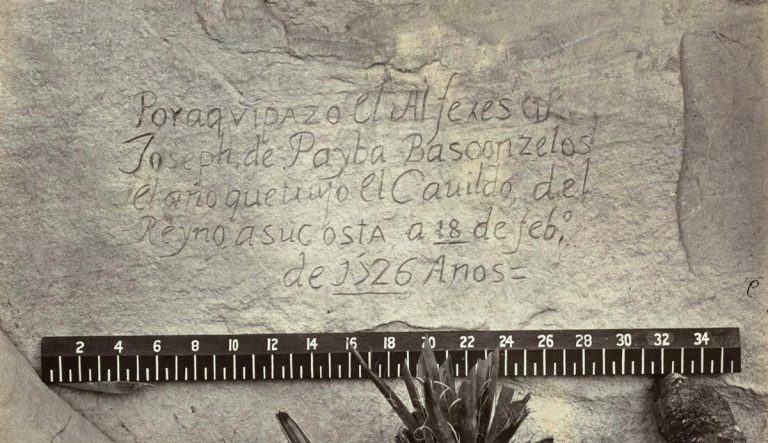 Por aqvi pazo el Alferes Dn
Joseph, de Payba Basconzelos
el año que tuyo el Cauildo, del
Reyno a su costa a 18 de feb.º
de 1526 Anos=
2 4 6 8 10 12 14 16 18 20 22 24 26 28 30 32 34
e